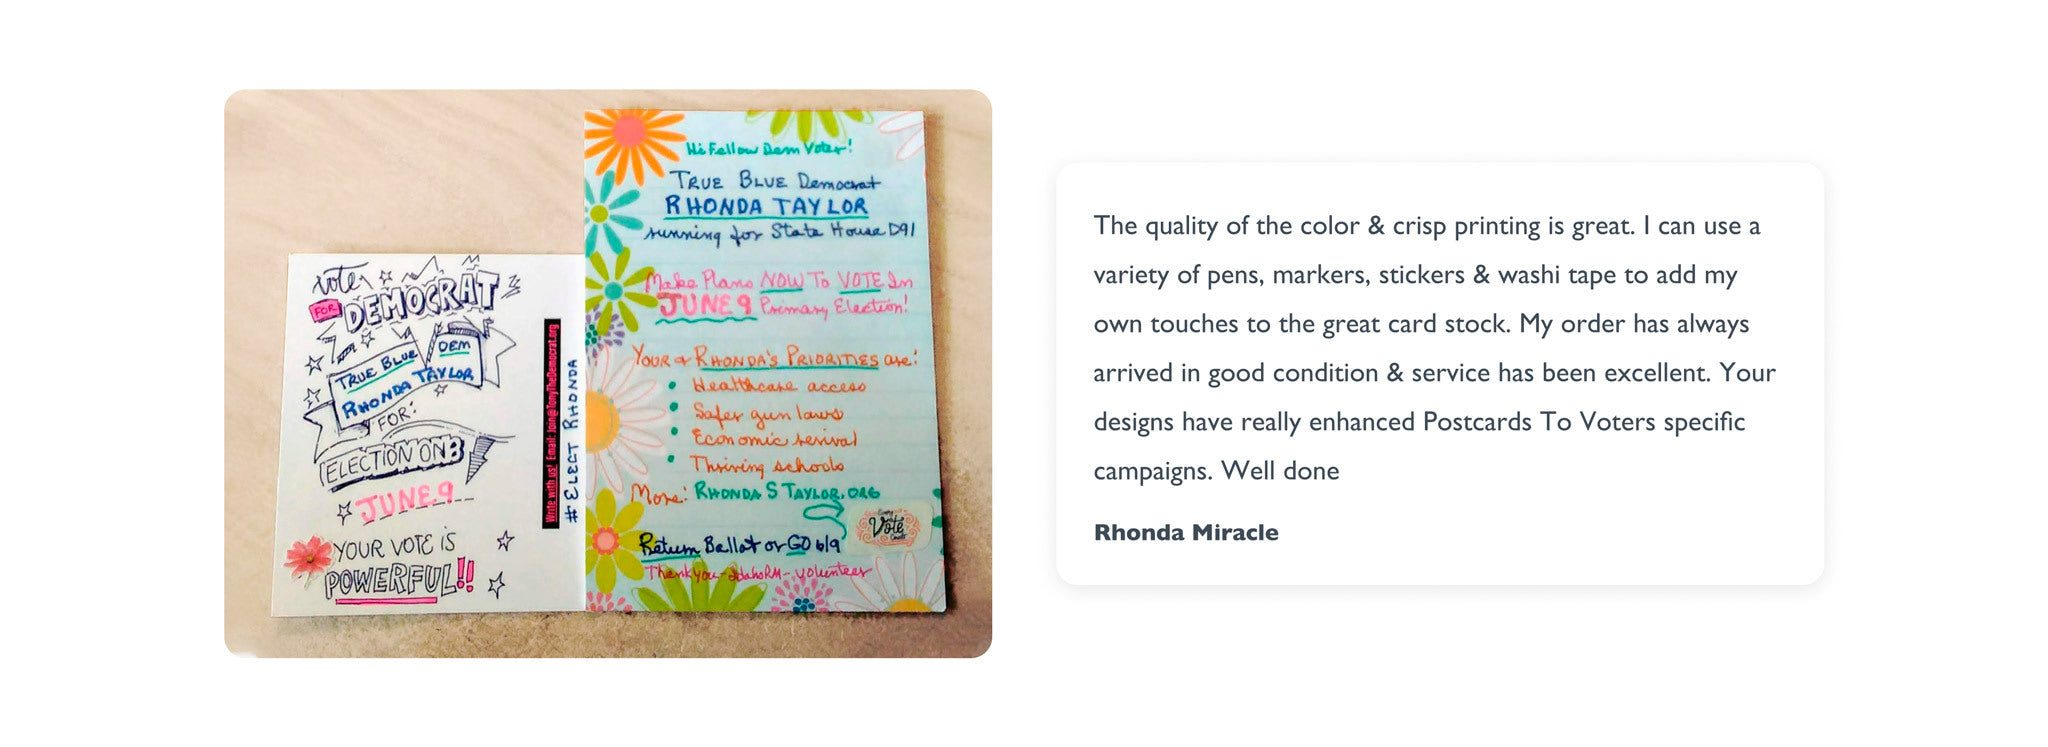 vote
FOR
DEMOCRAT
TRUE BLUE DEM
RHONDA TAYLOR
FOR:
ELECTION ON
JUNE 9
YOUR VOTE IS
POWERFUL!!
Write with us! Email: Join@TonyTheDemocrat.org
#ELECT RHONDA
Hi Fellow Dem Voter!
TRUE BLUE Democrat
RHONDA TAYLOR
running for State House D91
Make Plans NOW TO VOTE In
JUNE 9 Primary Election!
YOUR & RHONDA'S PRIORITIES are:
• Healthcare access
• Safer gun laws
• Economic revival
• Thriving schools
More: RHONDA S TAYLOR.ORG
Every
Vote
Counts
Return Ballot or GO 6/9
Thank you - IdahoRM - volunteer
The quality of the color & crisp printing is great. I can use a
variety of pens, markers, stickers & washi tape to add my
own touches to the great card stock. My order has always
arrived in good condition & service has been excellent. Your
designs have really enhanced Postcards To Voters specific
campaigns. Well done
Rhonda Miracle